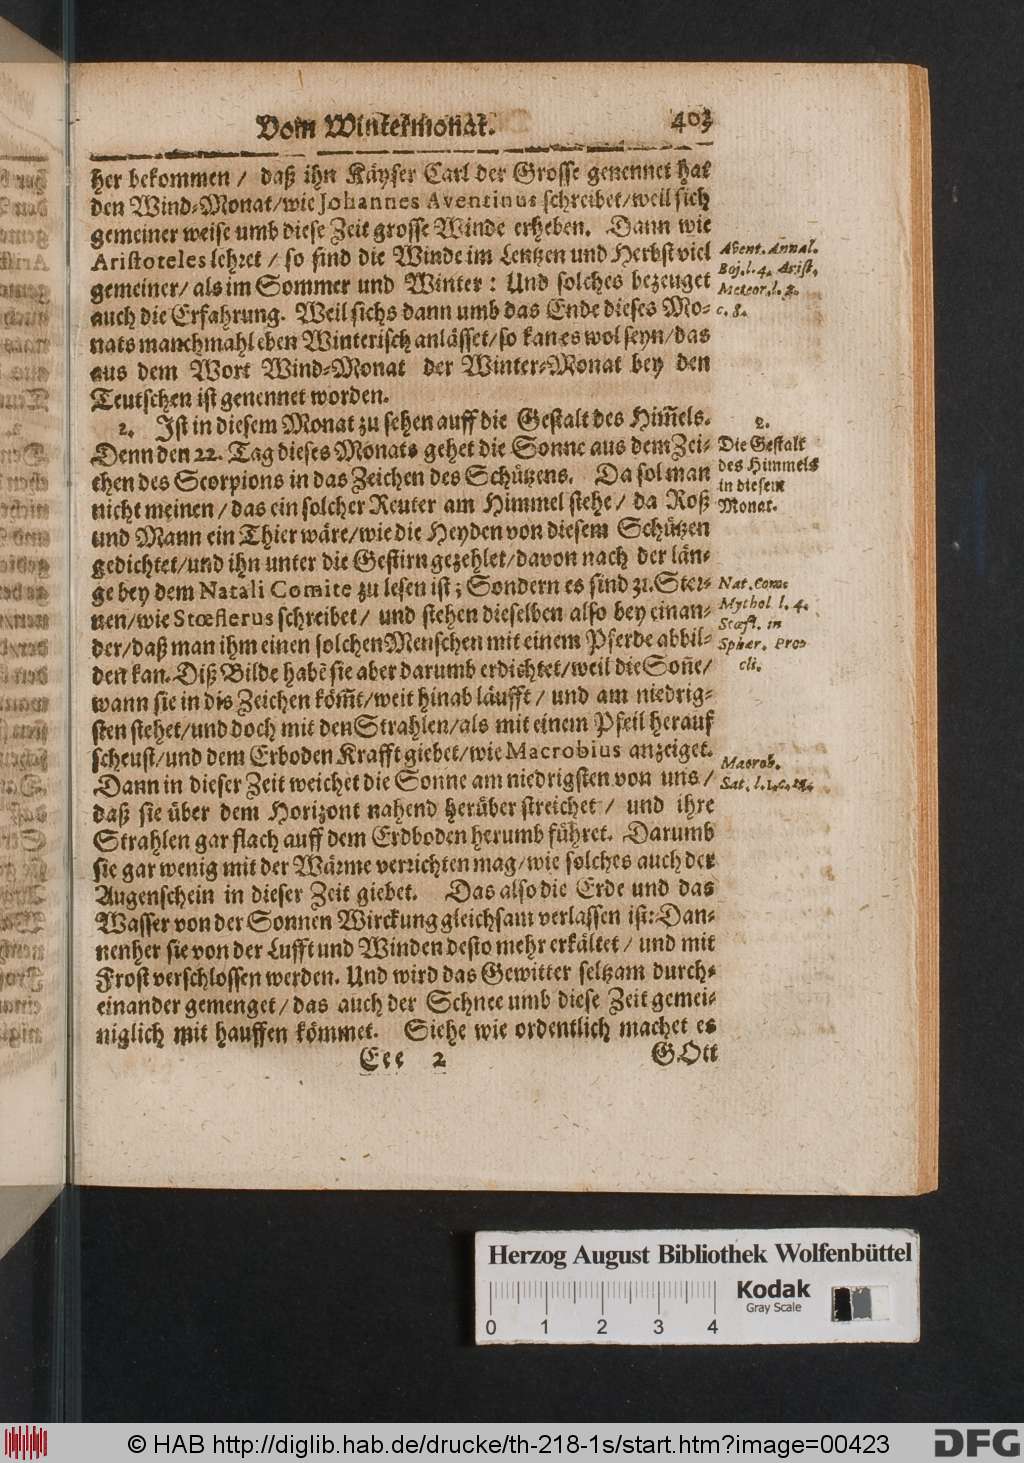 Vom Wintermonat. 403
her bekommen / daß ihn Käyser Carl der Grosse genennet hat
den Wind-Monat/wie Johannes Aventinus schreibet/weil sich
gemeiner weise umb diese Zeit grosse Winde erheben. Dann wie
Aristoteles lehret / so sind die Winde im Lentzen und Herbst viel
gemeiner/ als im Sommer und Winter: Und solches bezeuget
auch die Erfahrung. Weil sichs dann umb das Ende dieses Mo-
nats manchmahl eben Winterisch anlässet/so kan es wol seyn/das
aus dem Wort Wind-Monat der Winter-Monat bey den
Teutschen ist genennet worden.
Avent. Annal.
Boj. l. 4. Arist.
Meteor. l. 2.
c. 8.
2. Ist in diesem Monat zu sehen auff die Gestalt des Him̃els.
Denn den 22. Tag dieses Monats gehet die Sonne aus dem Zei-
chen des Scorpions in das Zeichen des Schützens. Da sol man
nicht meinen / das ein solcher Reuter am Himmel stehe / da Roß
und Mann ein Thier wäre/wie die Heyden von diesem Schützen
gedichtet/und ihn unter die Gestirn gezehlet/davon nach der län-
ge bey dem Natali Comite zu lesen ist; Sondern es sind 31. Ster-
nen/wie Stœflerus schreibet / und stehen dieselben also bey einan-
der/daß man ihm einen solchen Menschen mit einem Pferde abbil-
den kan. Diß Bilde habẽ sie aber darumb erdichtet/weil die Soñe/
wann sie in dis Zeichen köm̃t/weit hinab läufft / und am niedrig-
sten stehet/und doch mit den Strahlen/als mit einem Pfeil herauf
scheust/und dem Erboden Krafft giebet/wie Macrobius anzeiget.
Dann in dieser Zeit weichet die Sonne am niedrigsten von uns /
daß sie über dem Horizont nahend herüber streichet / und ihre
Strahlen gar flach auff dem Erdboden herumb führet. Darumb
sie gar wenig mit der Wärme verrichten mag/wie solches auch der
Augenschein in dieser Zeit giebet. Das also die Erde und das
Wasser von der Sonnen Wirckung gleichsam verlassen ist: Dan-
nenher sie von der Lufft und Winden desto mehr erkältet / und mit
Frost verschlossen werden. Und wird das Gewitter seltzam durch-
einander gemenget / das auch der Schnee umb diese Zeit gemei-
niglich mit hauffen kömmet. Siehe wie ordentlich machet es
2.
Die Gestalt
des Himmels
in diesem
Monat.
Nat. Com.
Mythol l. 4.
Stœfl. in
Sphær. Pro-
cli.
Macrob.
Sat. l. 1. c. 21.
Eee 2 GOtt
Herzog August Bibliothek Wolfenbüttel
Kodak
Gray Scale
0 1 2 3 4
© HAB http://diglib.hab.de/drucke/th-218-1s/start.htm?image=00423
DFG